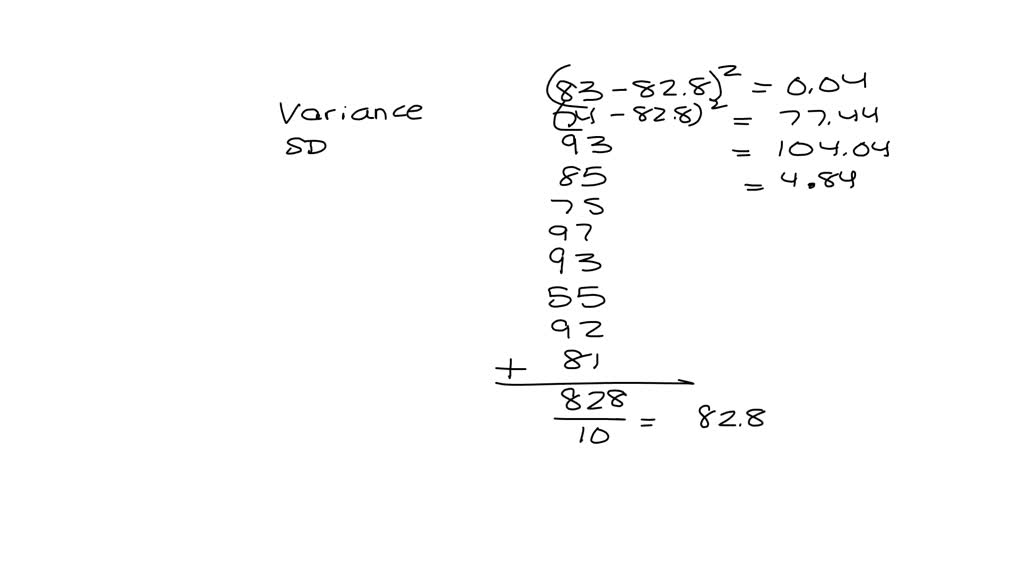 (83 - 82.8)² = 0.04
Variance
- 82.8)² = 77.44
SD
93 = 104.04
85 = 4.84
75
97
93
55
92
+ 81
828
10
= 82.8